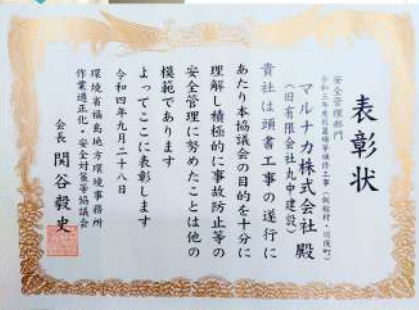 表彰状
安全管理部門
令和三年度仮置場等補修工事(飯舘村・川俣町)
マルナカ株式会社 殿
(旧有限会社丸中建設)
貴社は頭書工事の遂行に
あたり本協議会の目的を十分に
理解し積極的に事故防止等の
安全管理に努めたことは他の
模範であります
よってここに表彰します
令和四年九月二十八日
環境省福島地方環境事務所
作業適正化・安全対策等協議会
会長 関谷毅史